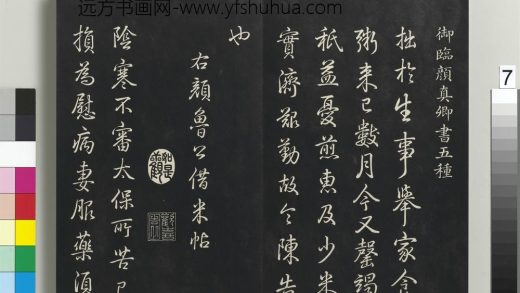 远方书画网-www.yfshuhua.com
御臨顔真卿書五種
拙於生事舉家食
粥来已數月今又罄竭
秖益憂煎惠及少米
實濟艱勤故令陳告
也
右顔魯公借米帖
如是觀
陰寒不審太保所苦已
損為慰病妻服藥須
7